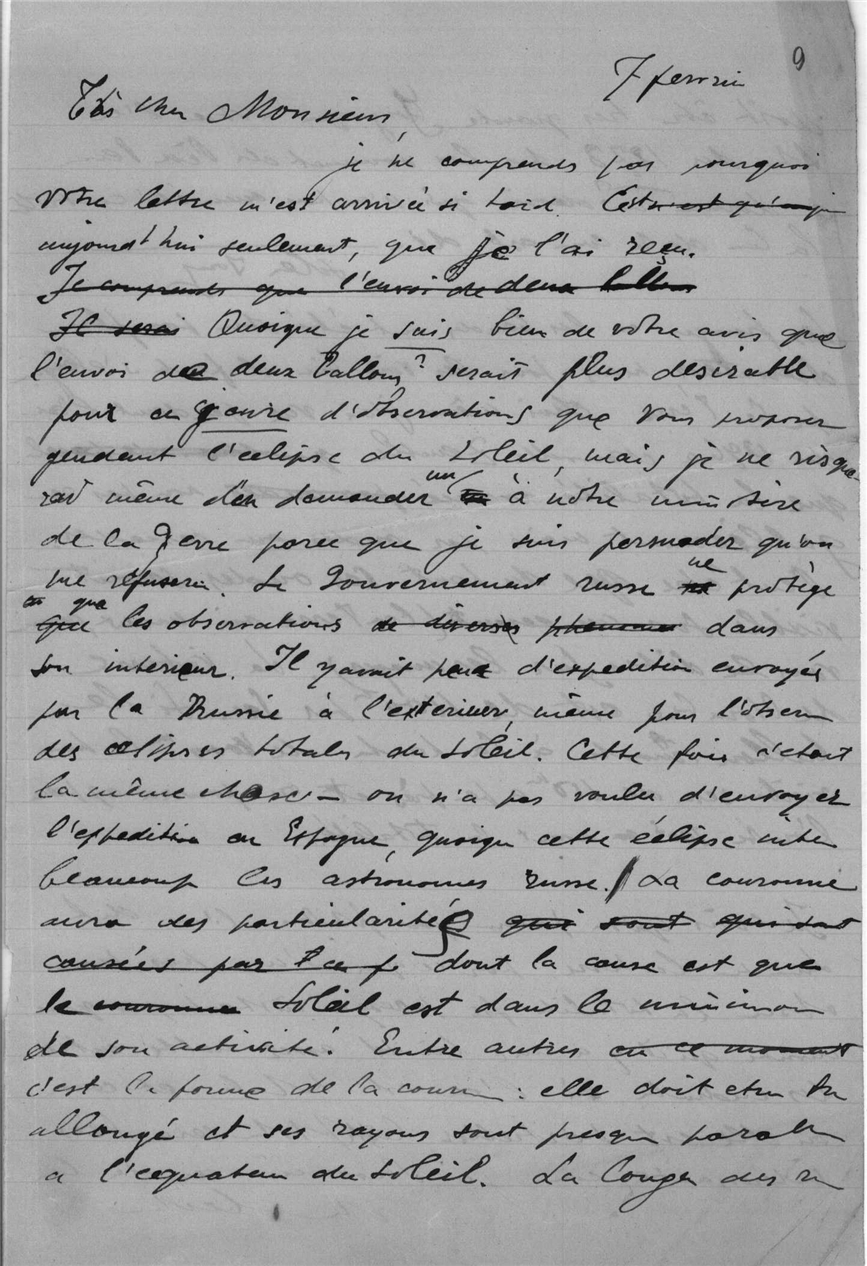 9
7 fevrier
Très cher Monsieur,
je ne comprends pas pourquoi
votre lettre m'est arrivée si tard.
aujourd'hui seulement, que je l'ai reçu.
Je comprends que l'envoi de deux ballons
Il serai Quoique je suis bien de votre avis que
l'envoi de deux ballons? serait plus desirable
pour ce genre d'observations que vous proposez
pendant l'eclipse du Soleil, mais je ne risque-
rai même d'en demander un à notre ministère
de la gerre parce que je suis persuader qu'on
me refusera. Le Gouvernement russe ne protège
que les observations de diverses dans
son interieur. Il y avait peu d'expedition envoyés
par la Russie à l'exterieur, même pour l'observ
des eclipses totales du Soleil. Cette fois c'etait
la même chose – on n'a pas voulu d'envoyer
l'expedition en Espagne, quoique cette éclipse inter
beaucoup les astronomes russe. / La couronne
aura des particularités qui sont qui sont
causées par dont la cause est que
le couronne Soleil est dans le minimum
de son activité. Entre autres en ce moment
c'est la forme de la couron : elle doit etre
allongé et ses rayons sont presque parall
a l'equateur du Soleil. La longer des